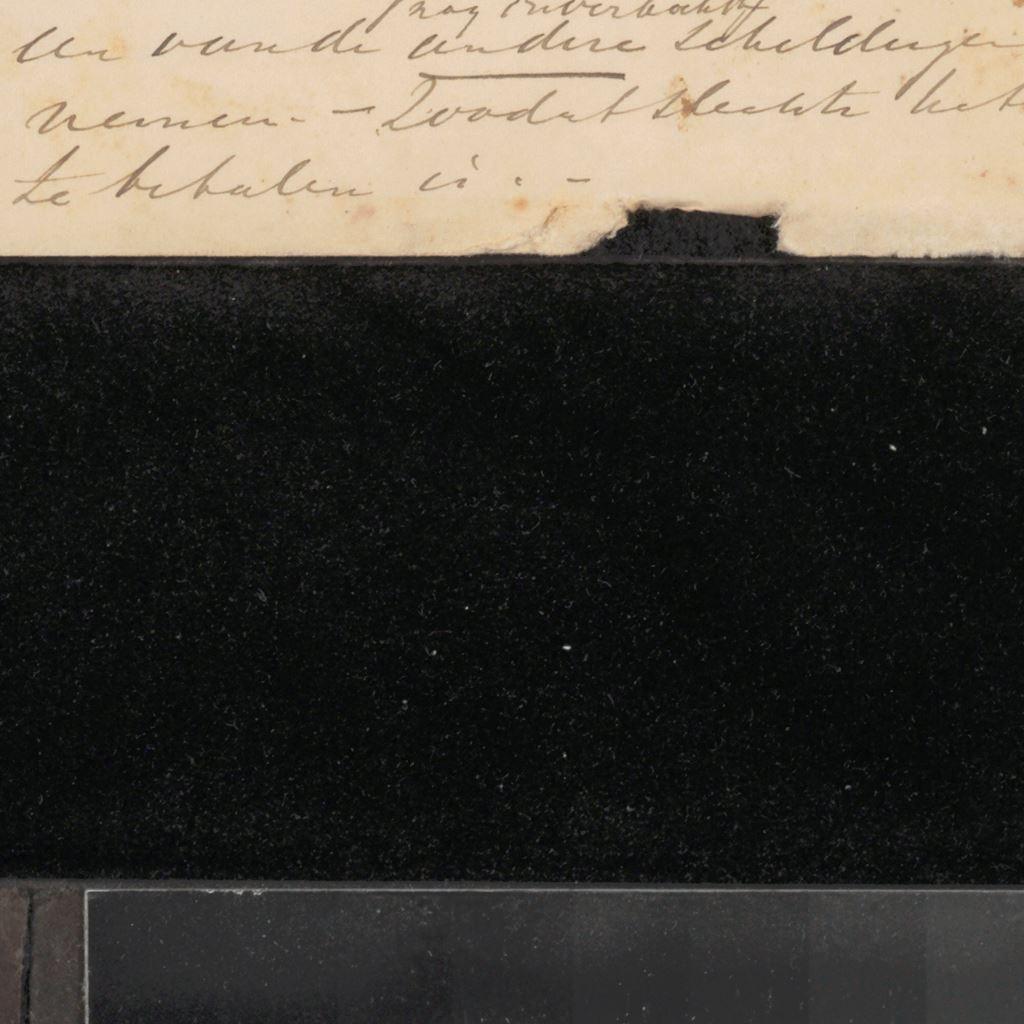 nog onverkocht
en van de andere schilderijen
nemen. - Zoodat slechts het
te behalen is. -